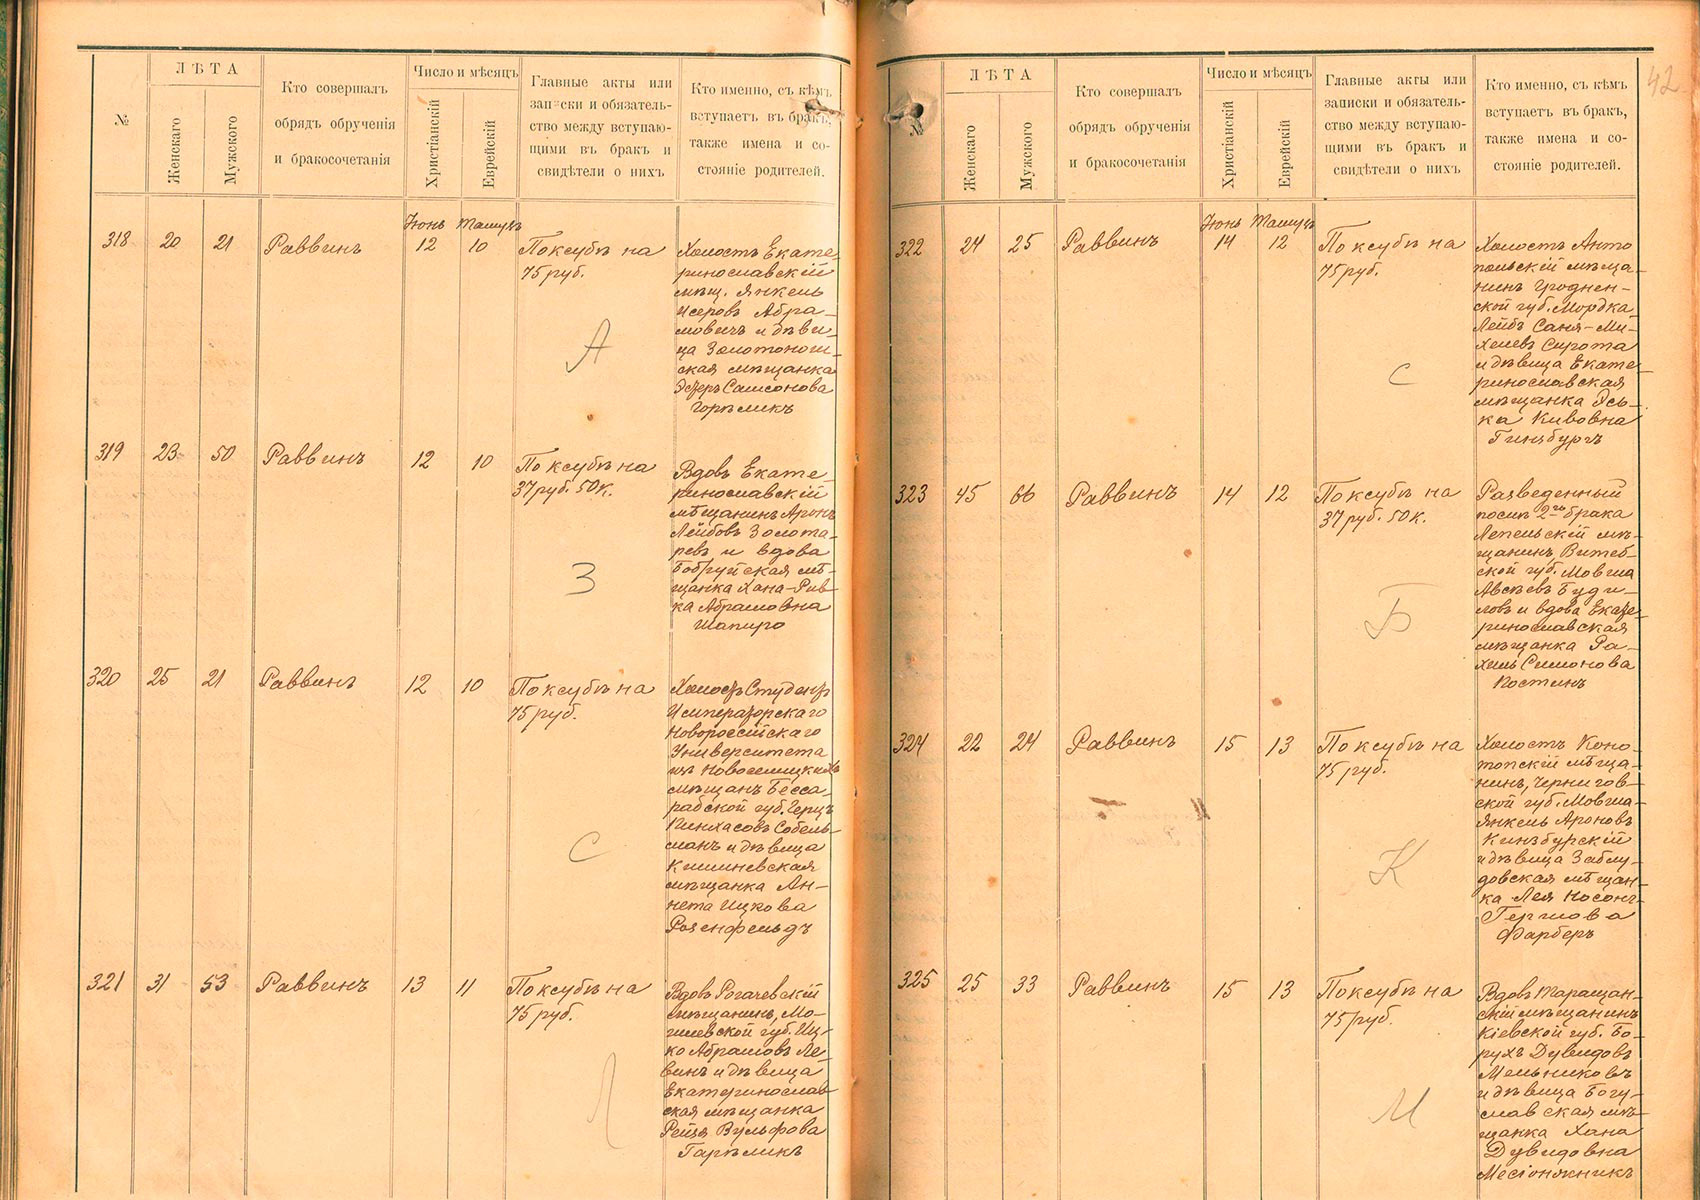 №
ЛѢТА
Женскаго
Мужского
Кто совершалъ
обрядъ обрученія
и бракосочетанія
Число и мѣсяцъ
Христіанскій
Еврейскій
Главные акты или
записки и обязатель-
ство между вступаю-
щими въ бракъ и
свидѣтели о нихъ
Кто именно, съ кѣмъ
вступаетъ въ бракъ,
также имена и со-
стояніе родителей.
318
20
21
Раввинъ
Іюнь
12
Тамузъ
10
По ксубѣ на
75 руб.
А
Холостъ Екате-
ринославскій
мѣщ. Янкель
Исеровъ Абра-
мовичъ и дѣви-
ца Золотонош-
ская мѣщанка
Эсферъ Самсонова
Горѣликъ
319
23
50
Раввинъ
12
10
По ксубѣ на
37 руб. 50 к.
З
Вдовъ Екате-
ринославскій
мѣщанинъ Аронъ
Лейбовъ Золота-
ревъ и вдова
Бобруйская мѣ-
щанка Хана-Рив-
ка Абрамовна
Шапиро
320
25
21
Раввинъ
12
10
По ксубѣ на
75 руб.
С
Холостъ Студентъ
Императорскаго
Новороссійскаго
Университета
изъ Новоселицкихъ
мѣщанъ Бесса-
рабской губ. Герцъ
Пинхасовъ Собель-
манъ и дѣвица
Кишиневская
мѣщанка Ан-
нета Ицкова
Розенфельдъ
321
31
53
Раввинъ
13
11
По ксубѣ на
75 руб.
Л
Вдовъ Рогачевскій
мѣщанинъ, Мо-
гилевской губ. Иц-
ко Абрамовъ Ле-
винъ и дѣвица
Екатеринослав-
ская мѣщанка
Рейзя Вульфова
Гарѣликъ
42
№
ЛѢТА
Женскаго
Мужского
Кто совершалъ
обрядъ обрученія
и бракосочетанія
Число и мѣсяцъ
Христіанскій
Еврейскій
Главные акты или
записки и обязатель-
ство между вступаю-
щими въ бракъ и
свидѣтели о нихъ
Кто именно, съ кѣмъ
вступаетъ въ бракъ,
также имена и со-
стояніе родителей.
322
24
25
Раввинъ
Іюнь
14
Тамузъ
12
По ксубѣ на
75 руб.
С
Холостъ Анто
польскій мѣща-
нинъ Гроднен-
ской губ. Мордка-
Лейбъ Саня-Ми-
хелевъ Сирота
и дѣвица Екате-
ринославская
мѣщанка Эсь-
ка Кивовна
Гинзбургъ
323
45
66
Раввинъ
14
12
По ксубѣ на
37 руб. 50 к.
Б
Разведенный
послѣ 2го брака
Лепельскій мѣ-
щанинъ Витеб-
ской губ. Мовша
Авсѣевъ Буди-
ловъ и вдова Екате-
ринославская
мѣщанка Ра-
хиль Симонова
Костинъ
324
22
24
Раввинъ
15
13
По ксубѣ на
75 руб.
К
Холостъ Коно-
топскій мѣща-
нинъ, Чернигов-
ской губ. Мовша-
Янкель Ароновъ
Кинзбурскій
и дѣвица Заблу-
довская мѣщан-
ка Лея Носонъ-
Гершова
Фарберъ
325
25
33
Раввинъ
15
13
По ксубѣ на
75 руб.
М
Вдовъ Таращан-
скій мѣщанинъ
Кіевской губ. Бо-
рухъ Дувидовъ
Мельниковъ
и дѣвица Богу-
славская мѣ-
щанка Хана
Дувидовна
Месіонжникъ